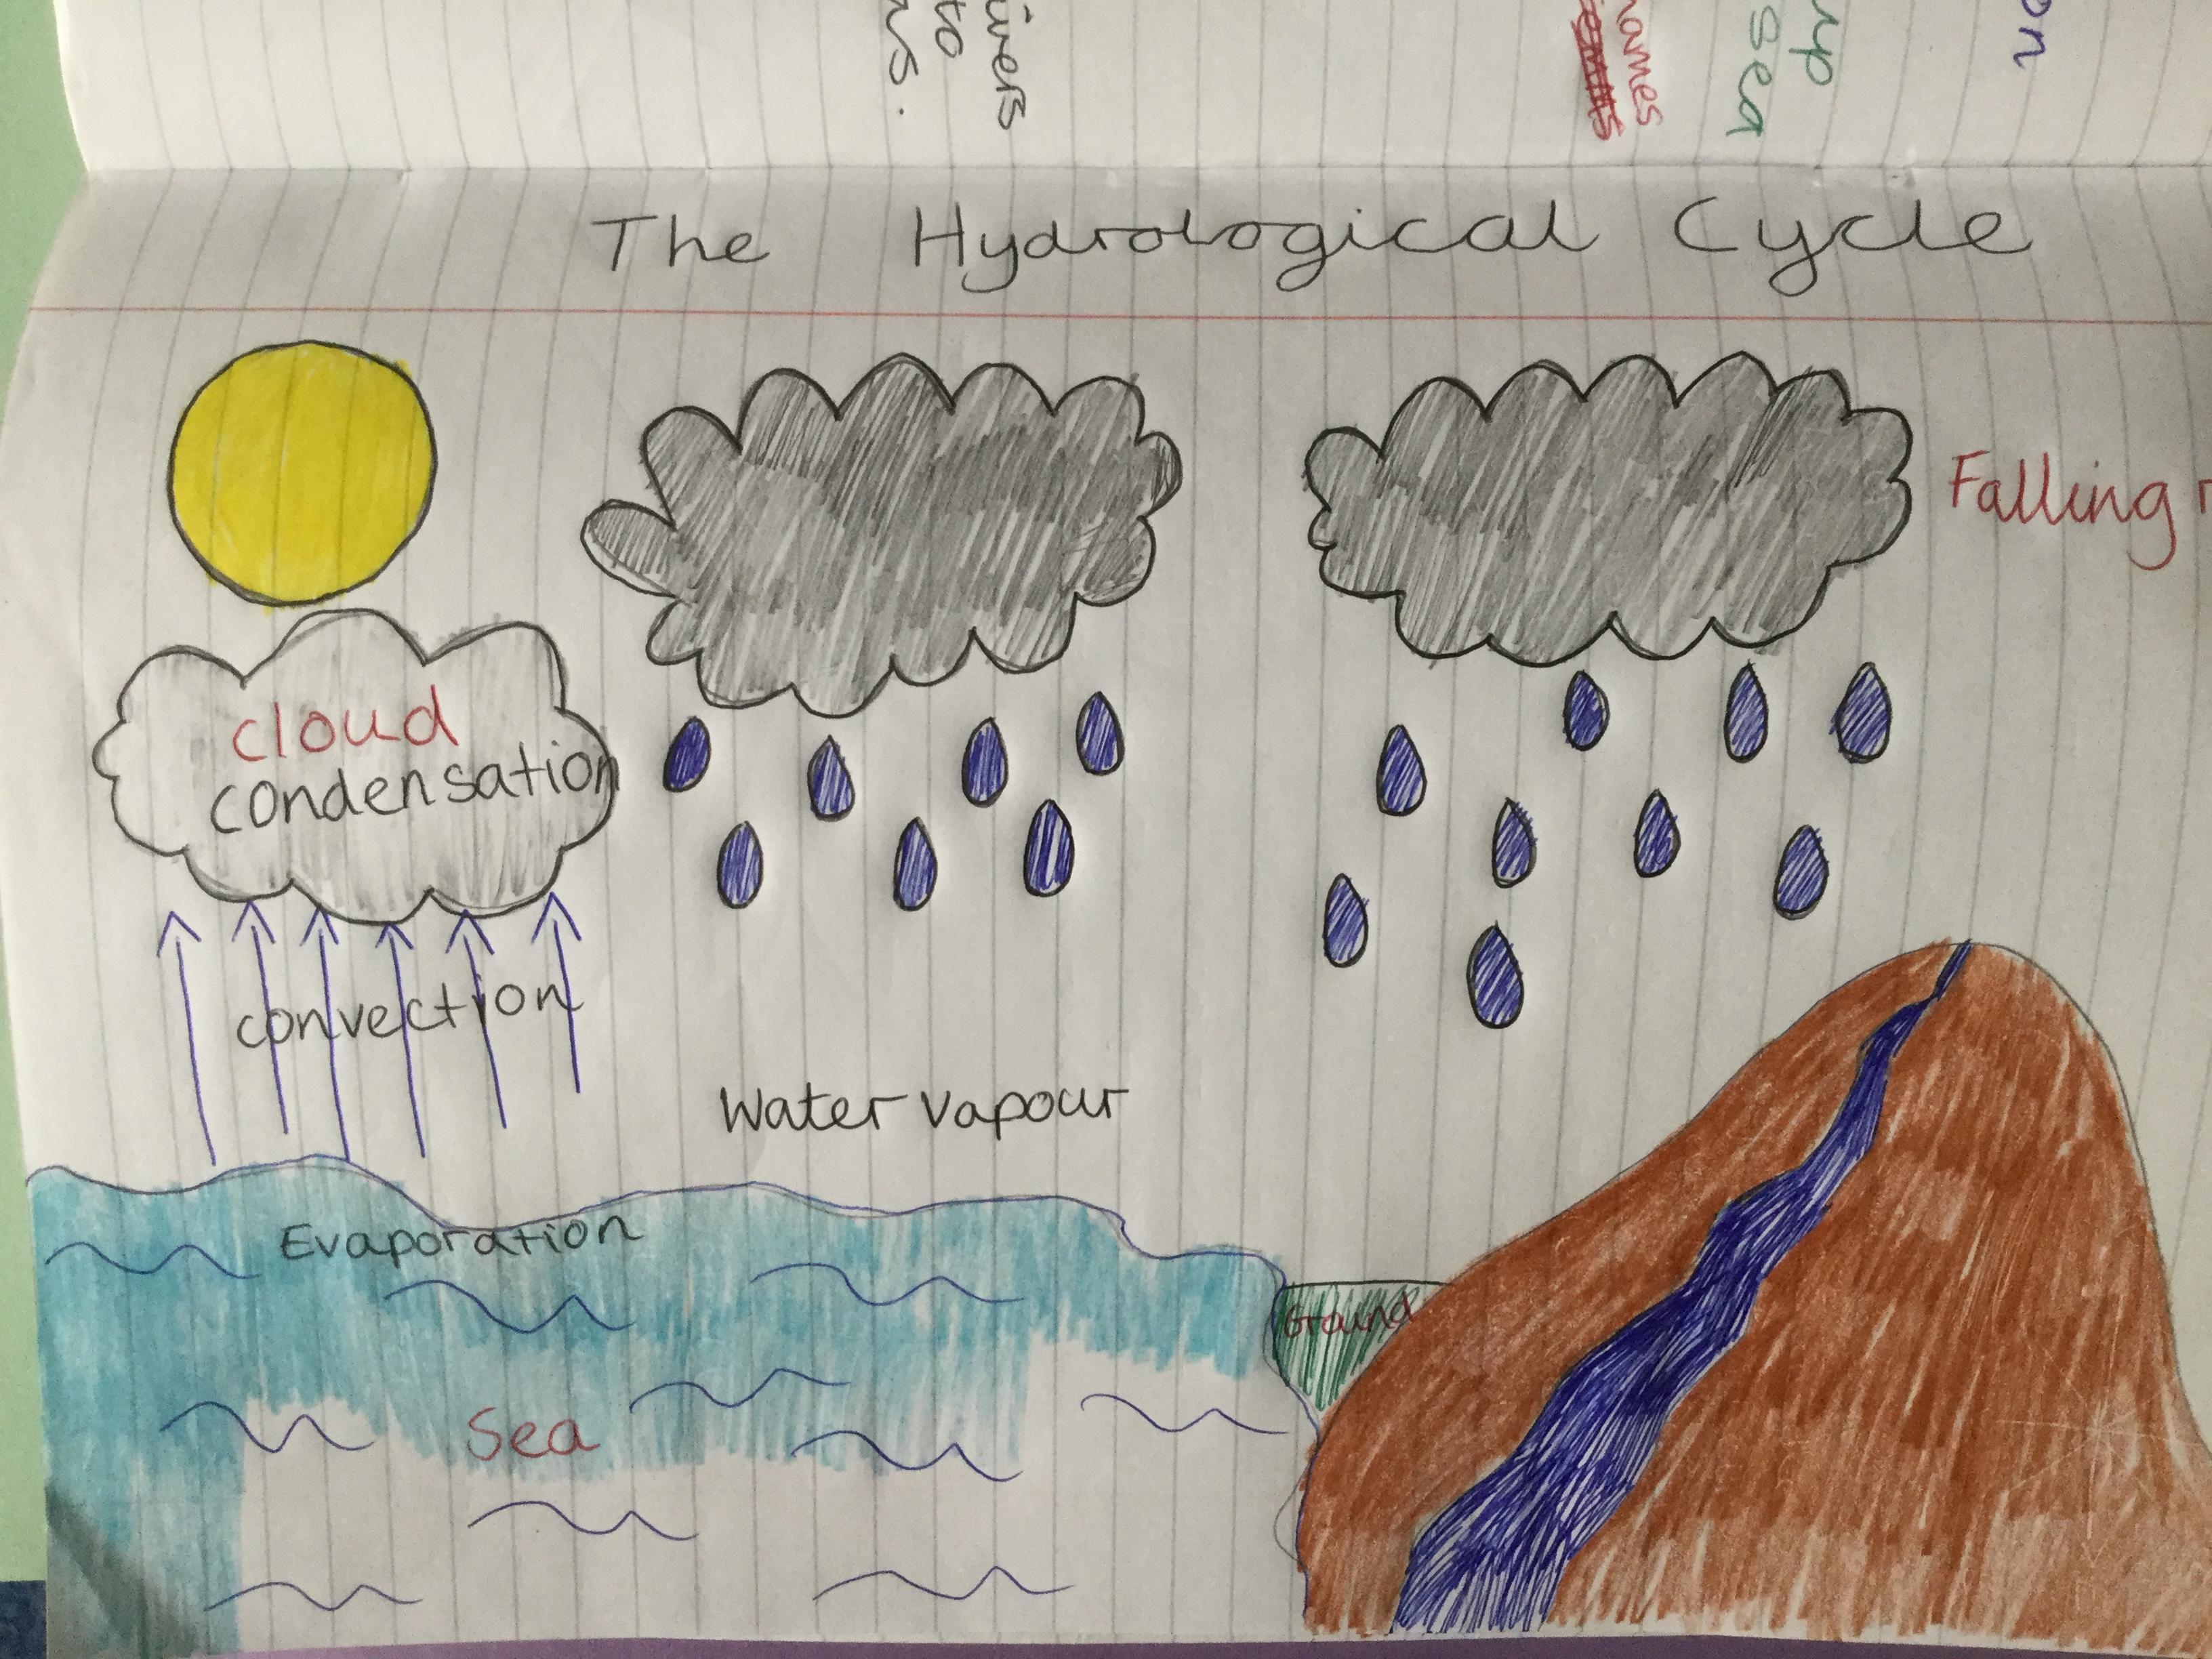 ivers
to
ns.
names
up
sea
on
The Hydrological Cycle
Falling r
cloud
condensation
convection
Water Vapour
Evaporation
Ground
Sea